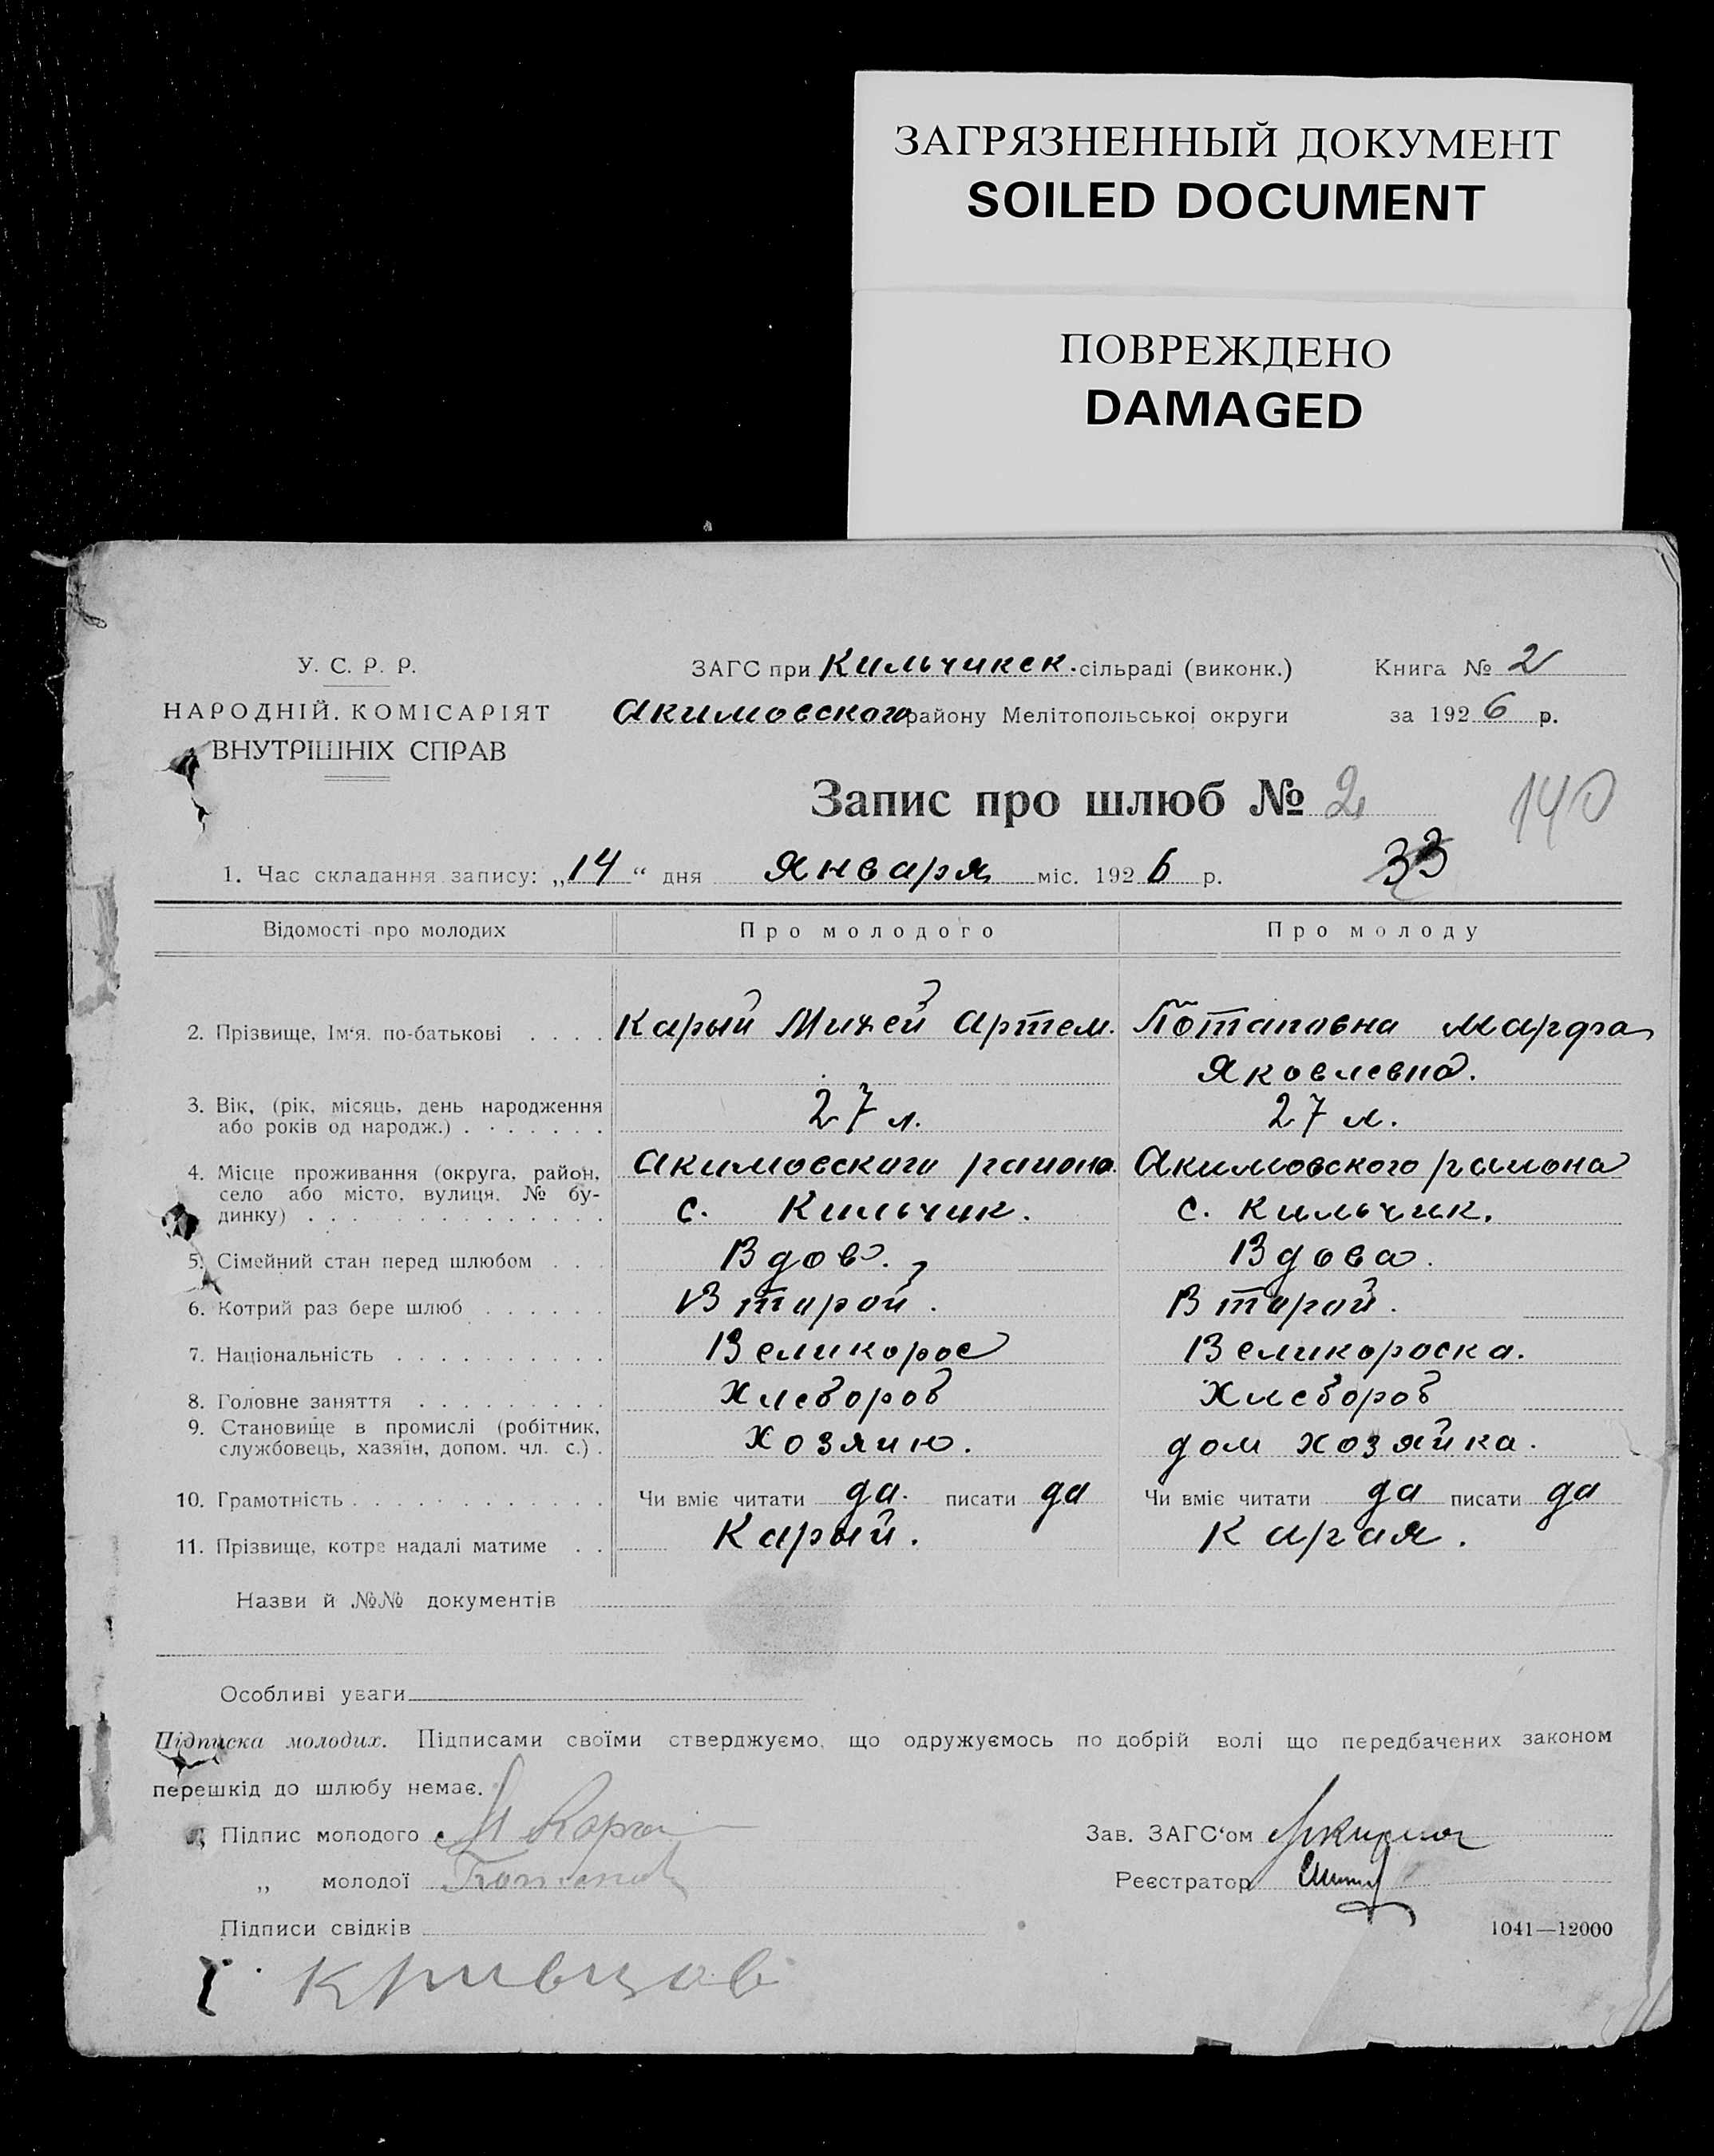 ЗАГРЯЗНЕННЫЙ ДОКУМЕНТ
SOILED DOCUMENT
ПОВРЕЖДЕНО
DAMAGED
У. С. Р. Р.
НАРОДНІЙ. КОМІСАРІЯТ
ВНУТРІШНІХ СПРАВ
ЗАГС при Кильчикск. сільраді (виконк.)
Акимовского району Мелітопольської округи
Книга № 2
за 1926 р.
Запис про шлюб № 2
140
1. Час складання запису: „14“ дня Января міс. 1926 р.
33
Відомості про молодих Про молодого Про молоду
2. Прізвище, Ім'я. по-батькові . . . . Карый Михей Артем. Потаповна Марфа
Яковлевна.
3. Вік, (рік, місяць, день народження
або років од народж.) . . . . . . . 27 л. 27 л.
4. Місце проживання (округа, район, Акимовского района Акимовского района
село або місто, вулиця, № бу-
динку) . . . . . . . . . . . . . . с. Кильчик. с. Кильчик.
5. Сімейний стан перед шлюбом . . . Вдов. Вдова.
6. Котрий раз бере шлюб . . . . . . Второй. Второй.
7. Національність . . . . . . . . . . Великорос Великороска.
8. Головне заняття . . . . . . . . . Хлебороб Хлебороб
9. Становище в промислі (робітник,
службовець, хазяїн, допом. чл. с.) . Хозяин. дом хозяйка.
10. Грамотність . . . . . . . . . . . . Чи вміє читати да. писати да Чи вміє читати да писати да
11. Прізвище, котре надалі матиме . . Карый. Карая.
Назви й №№ документів
Особливі уваги
Підписка молодих. Підписами своїми стверджуємо, що одружуємось по добрій волі що передбачених законом
перешкід до шлюбу немає.
Підпис молодого
„ молодої
Підписи свідків
Зав. ЗАГС'ом
Реєстратор
1041—12000
Кривцов